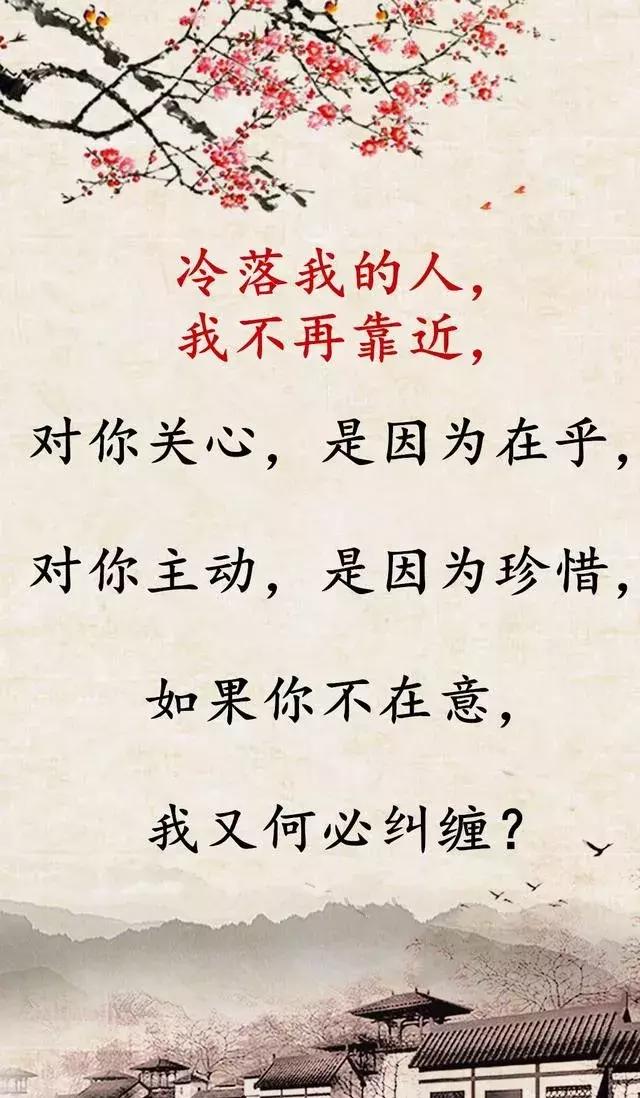 冷落我的人，
我不再靠近，
对你关心，是因为在乎，
对你主动，是因为珍惜，
如果你不在意，
我又何必纠缠？